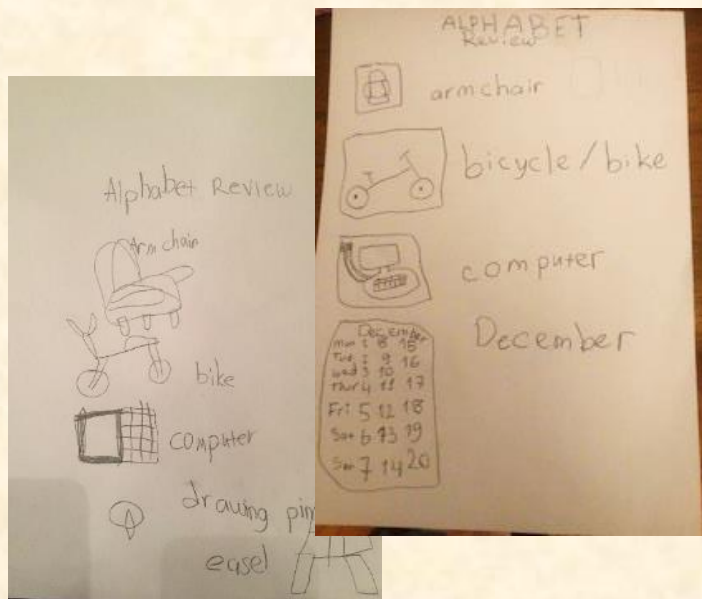 Alphabet Review
Arm chair
bike
computer
drawing pin
easel
ALPHABET
Review
armchair
bicycle/bike
computer
December
December
Mon 1 8 15
Tue 2 9 16
Wed 3 10
Thur 4 11 17
Fri 5 12 18
Sat 6 13 19
Sun 7 14 20